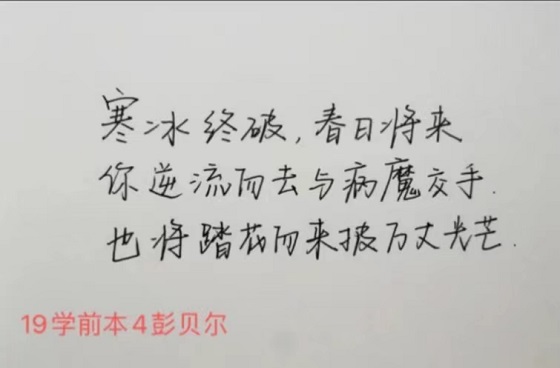 寒冰终破,春日将来
你逆流而去与病魔交手.
也将踏花而来披万丈光芒.
19学前本4彭贝尔